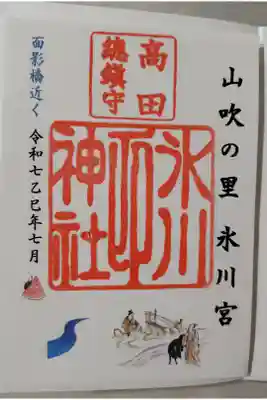 山吹の里 氷川宮
高田
總鎮守
氷川
神社
面影橋近く
令和七乙巳年七月